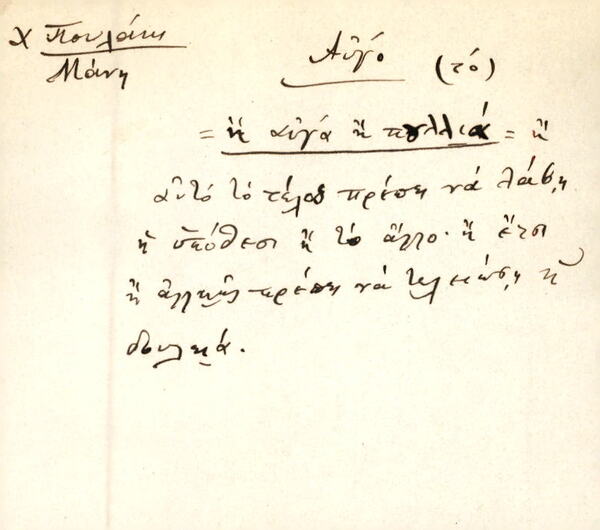 Χ Πουλάκη
Μάνη
Αὐγό (τό)
= ἤ αὐγά ἤ πουλλιά = ἤ
αὐτό τό τέλος πρέπει νά λάβῃ
ἡ ὑπόθεσι ἤ τό ἄλλο· ἤ ἔτσι
ἤ ἀλλιῶς πρέπει νά τελειώσῃ ἡ
δουλειά.